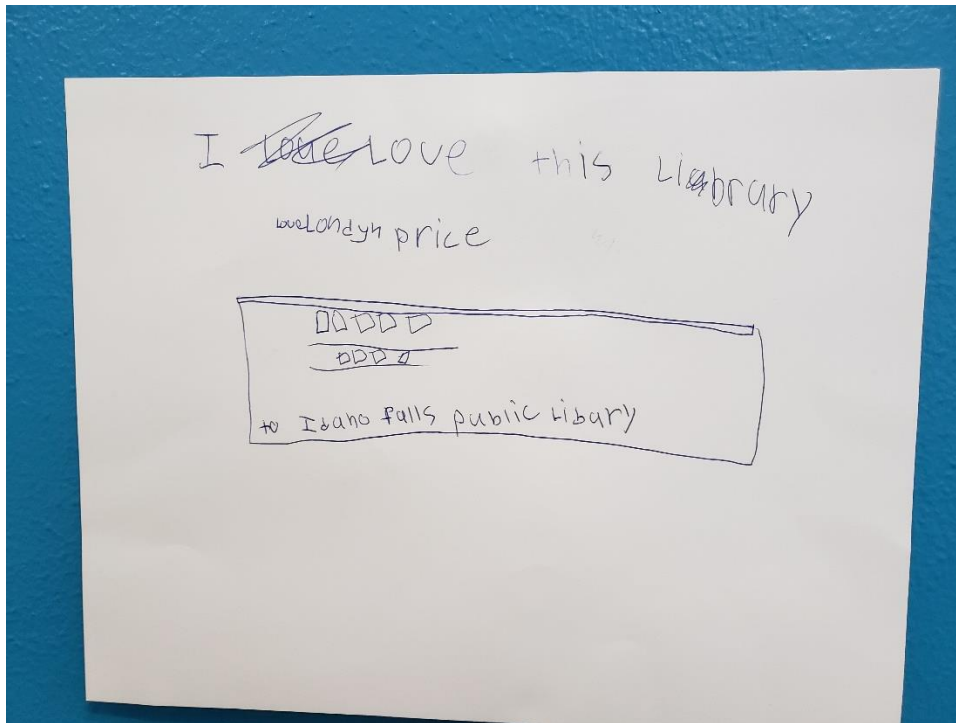 I Love this Librury
love Londyn price
to Idaho falls public Libury